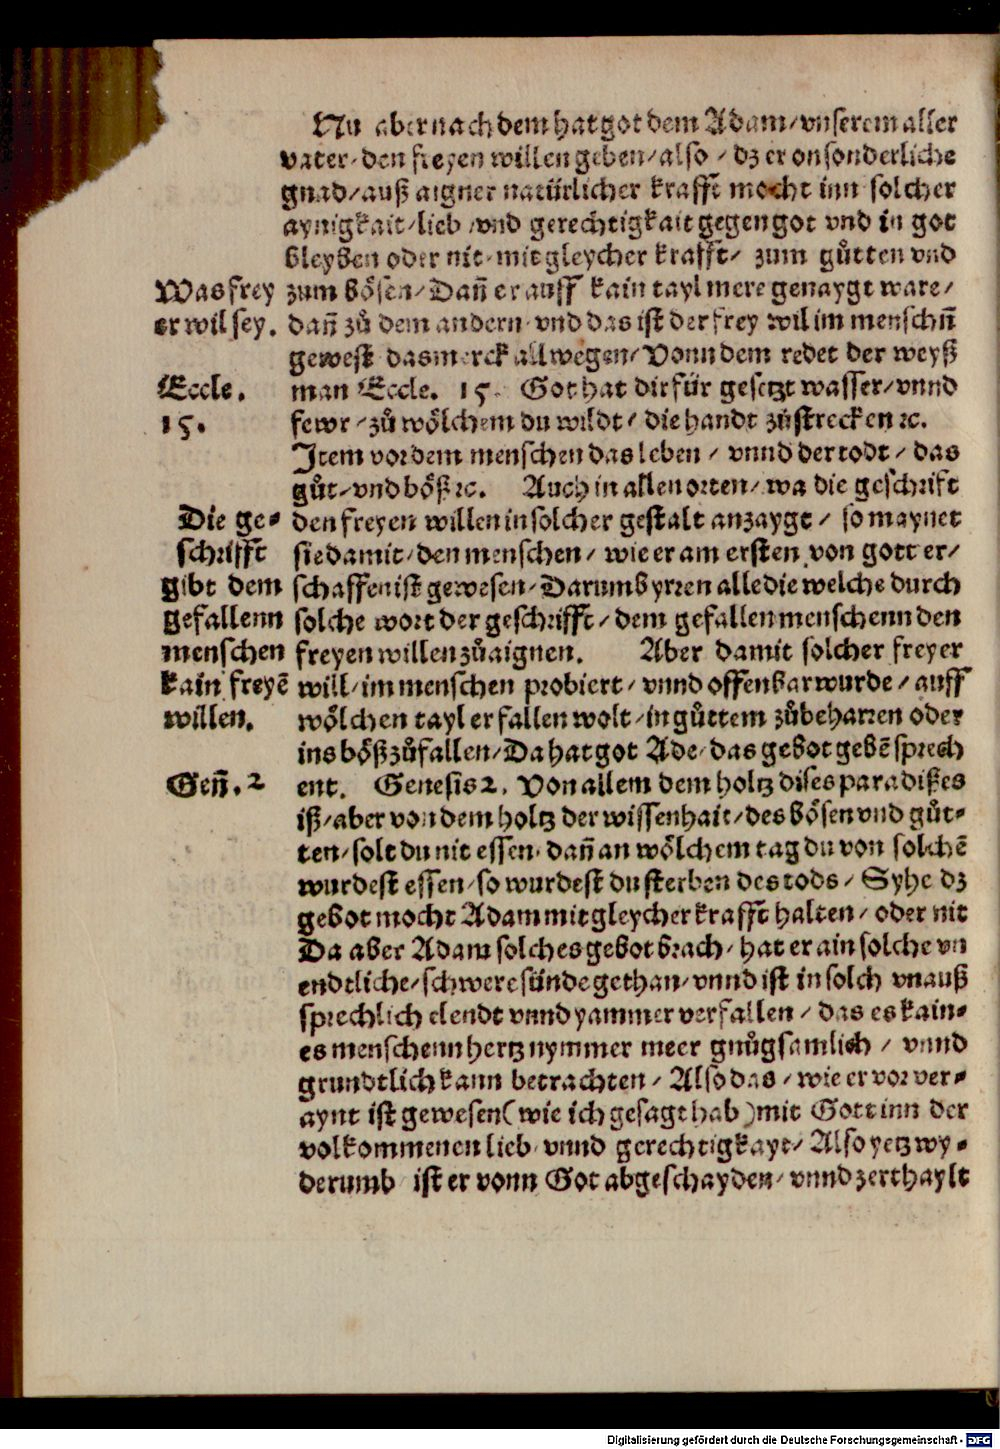 Nu aber nach dem hat got dem Adam/ vnserem aller
vater/ den freyen willen geben/ also / dz er on sonderliche
gnad/ auß aigner natürlicher krafft mocht inn solcher
aynigkait/ lieb /vnd gerechtigkait gegen got vnd in got
bleyben oder nit/ mit gleycher krafft/ zum gůtten vnd
Was frey
er wil sey.
zum bösen/ Dañ er auff kain tayl mere genaygt ware/
dañ zů dem andern/ vnd das ist der frey wil im menschñ
gewest das merck allwegen/ Vonn dem redet der weyß
Eccle.
15.
man Eccle. 15. Got hat dir für gesetzt wasser/ vnnd
fewr / zů wölchem du wildt / die handt zůstrecken ꝛc.
Item vor dem menschen das leben / vnnd der todt / das
gůt/ vnd böß ꝛc. Auch in allen orten/ wa die geschrift
Die ge-
schrifft
gibt dem
gefallenn
menschen
kain freyē
willen.
den freyen willen in solcher gestalt anzaygt / so maynet
sie damit/ den menschen / wie er am ersten von gott er/
schaffen ist gewesen/ Darumb yrren alle die welche durch
solche wort der geschrifft/ dem gefallen menschenn den
freyen willen zůaignen. Aber damit solcher freyer
will/ im menschen probiert/ vnnd offenbar wurde / auff
wölchen tayl er fallen wolt/ in gůttem zůbeharren oder
ins böß zůfallen/ Da hat got Ade/ das gebot gebē sprech
Geñ. 2
ent. Genesis 2. Von allem dem holtz dises paradißes
iß/ aber von dem holtz der wissenhait/ des bösen vnd gůt-
ten/ solt du nit essen/ dañ an wölchem tag du von solchē
wurdest essen/ so wurdest du sterben des tods / Syhe dz
gebot mocht Adam mit gleycher krafft halten/ oder nit
Da aber Adam solches gebot brach/ hat er ain solche vn
endtliche/ schwere sünde gethan/ vnnd ist in solch vnauß
sprechlich elendt vnnd yammer verfallen / das es kain-
es menschenn hertz nymmer meer gnůgsamlich / vnnd
grundtlich kann betrachten / Also das / wie er vor ver-
aynt ist gewesen (wie ich gesagt hab) mit Gott inn der
volkommenen lieb/ vnnd gerechtigkayt/ Also yetz wy-
derumb ist er vonn Got abgeschayden/ vnnd zerthaylt
Digitalisierung gefördert durch die Deutsche Forschungsgemeinschaft - DFG